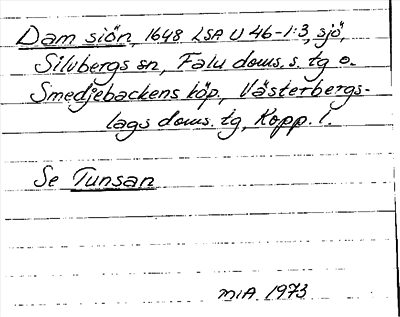 Dam siön, 1648 LSA U 46-1:3, sjö,
Silvbergs sn, Falu doms. s. tg o.
Smedjebackens köp., Västerbergs-
lags doms. tg, Kopp. l.
Se Tunsan
MIA. 1973